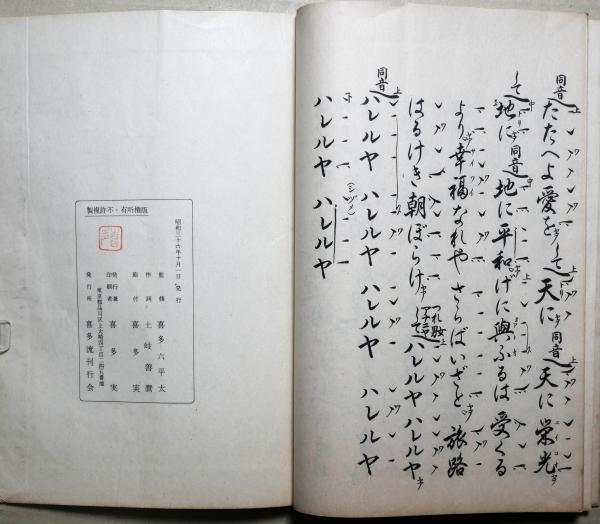 同音 たたへよ愛を して 天に 同音 天に 栄光
して 地に 同音 地に平和げに與ふるは 受くる
より幸福なれや さらばいざと 旅路
はるけき朝ぼらけ ハレルヤ ハレルヤ
同音 ハレルヤ ハレルヤ ハレルヤ ハレルヤ
ハレルヤ ハレルヤ
版権所有・不許複製
昭和三十六年十月一日 発行
監修 喜多六平太
作詞 土岐善麿
節付 喜多実
発行兼印刷者 喜多実
東京都品川区上大崎四丁目二四五番地
発行所 喜多流刊行会